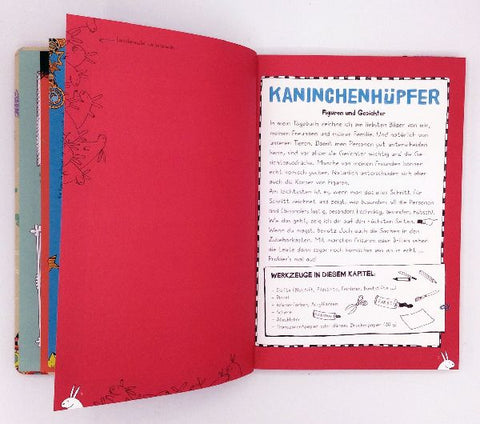 KANINCHENHÜPFER
Figuren und Gesichter
In mein Tagebuch zeichne ich am liebsten Bilder von mir,
meinen Freunden und meiner Familie. Und natürlich von
unseren Tieren. Damit man Personen gut unterscheiden
kann, sind vor allem die Gesichter wichtig und die Ge-
sichtsausdrücke. Manche von meinen Freunden können
echt komisch gucken. Natürlich unterscheiden sich aber
auch die Körper von Figuren.
Am leichtesten ist es, wenn man das alles Schritt für
Schritt zeichnet und zeigt, wie besonders all die Personen
sind (besonders lustig, besonders besonders, hübsch).
Wie das geht, zeig ich dir auf den nächsten Seiten.
Wenn du magst, benutz doch auch die Sachen in den
Zauberkästen. Mit manchen Frisuren oder Brillen sehen
die Leute dann sogar noch komischer aus als in echt ...
Probier's mal aus!
WERKZEUGE IN DIESEM KAPITEL:
- Stifte (Bleistift, Filzstifte, Fineliner, Buntstifte ...)
- Pinsel
- Wasserfarben, Acrylfarben
- Schere
- Klebstoff
- Transparentpapier oder dünnes Druckerpapier (80 g)